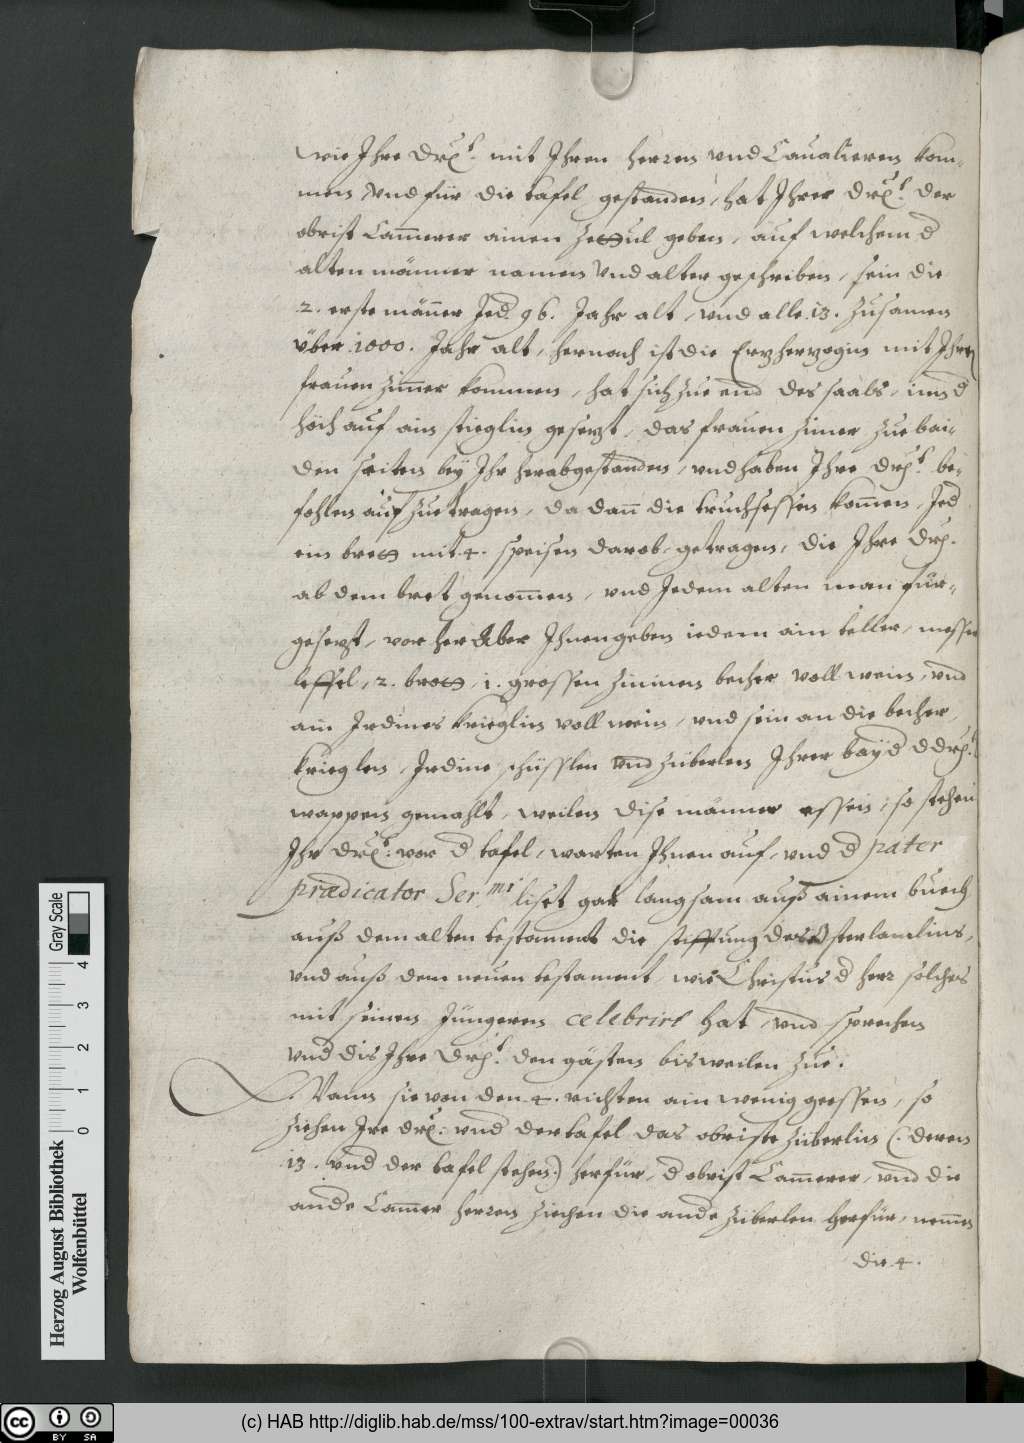 wie Ihre Drl. mit Ihren herren vnd Caualieren kom-
men, vnd für die tafel gestanden, hat Ihrer Drl. der
obrist Cam̄erer ainen Zettul geben, auf welchem d
alten männer namen vnd alter geschriben, sein die
2. erste män̄er Jed. 96. Jahr alt, vnd alle 13. zusamen
über 1000. Jahr alt, hernach ist die Erzherzogin mit Ihrē
frauen Zim̄er kommen, hat sich zue end des saals, in d
höch auf ain stieglin gesezt, das frauen zimer zue bai-
den seiten bey Ihr herabgestanden, vnd haben Ihre Drl. be-
fohlen auf zue tragen, da dan̄ die truchsessen kom̄en, Jed
ein brett mit 4. speisen darob, getragen, die Ihre Drl.
ab dem bret genom̄en, vnd Jedem alten man für-
gesezt, vorher aber Ihnen geben iedem ain teller, messer
leffel, 2. brott, 1. grossen Zininen becher voll wein, vnd
ain Irdines krieglin voll wein, vnd sein an die becher,
krieglen, Irdine schüsslen vnd züberlen Ihrer bayd DDrl.
wappen gemahlt, weilen dise männer essen, so stehen
Ihr Drl. vor d tafel, warten Ihnen auf, vnd d pater
prædicator Ser.mi list gar langsam auß ainem buech
auß dem alten testament die stifftung des Osterlamlins,
vnd auß dem neuen testament, wie Christus d herr solches
mit seinen Jüngeren celebrirt hat, vnd sprechen
vnd dis Ihre Drl. den gästen bisweilen zue.
Wann sie von den 4. richten ain wenig geessen, so
ziehen Ire Drl. vnd der tafel das obriste züberlin (: deren
13. vnd der tafel stehen:) herfür, d obrist Cam̄erer, vnd die
ande Cam̄er herren ziechen die ande züberlen herfür, nem̄en
die 4.
Herzog August Bibliothek
Wolfenbüttel
0 1 2 3 4
Gray Scale
cc BY SA
(c) HAB http://diglib.hab.de/mss/100-extrav/start.htm?image=00036